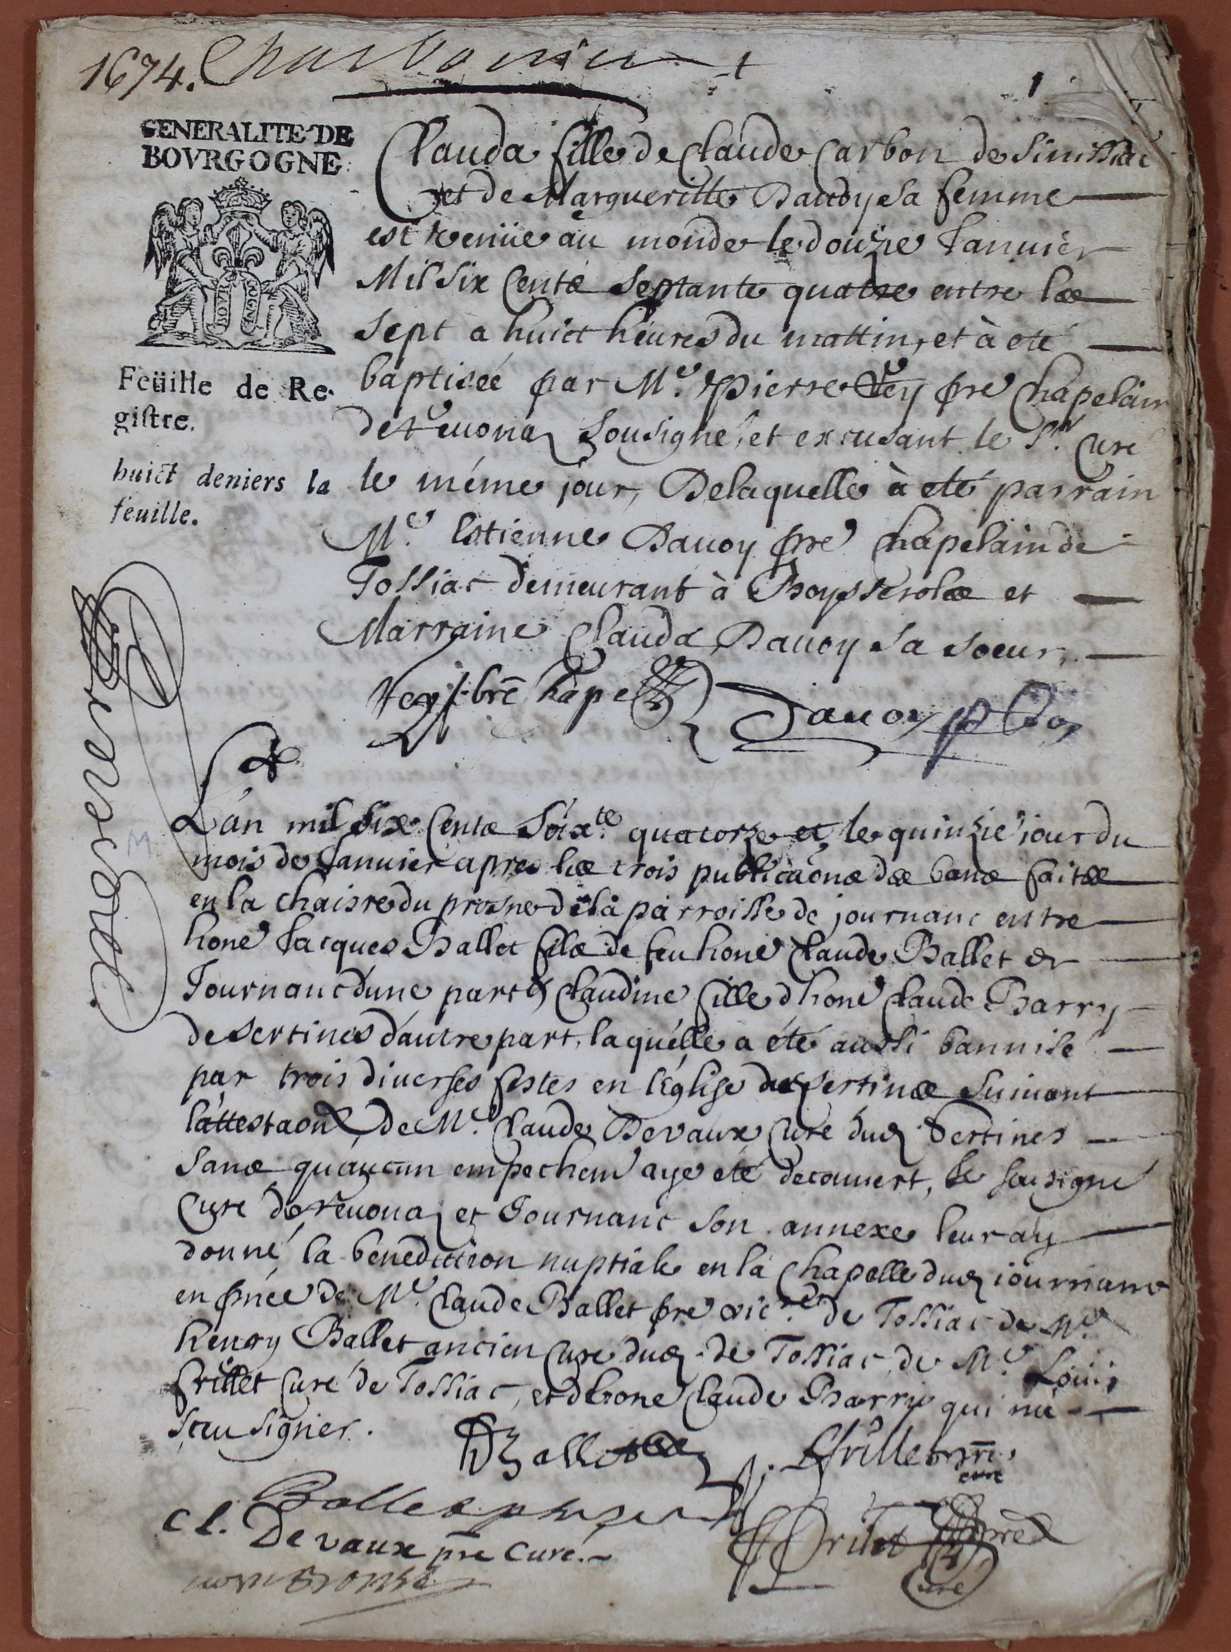 1674.
1
GENERALITE DE
BOVRGOGNE
Feüille de Re-
gistre.
huict deniers la
feuille.
Clauda fille de Claude Carbon de Simissiac
et de Marguerille Dauoy sa femme
est venüe au monde le douze Januier
Mil six Cents septante quatre entre les
sept a huict heures du mattin, et à eté
baptisée par Mre. pierre Rey pre Chapelain
de treuona sousigné, et excusant le Sr. curé
le méme jour, De laquelle à eté parrain
Mre. Estienne Dauoy pre chapelain de
Tossiac demeurant à et
Marraine Clauda Dauoy sa soeur,
Rey pbre chape
Dauoy
L'an mil six Cents soixte. quatorze et le quinzie jour du
mois de Januier apres les trois publicaons des bans faittes
en la chaisre du prosne de la parroisse de journanc entre
hone Jacques Ballet fils de feu hone Claude Ballet de
Journanc d'une part et Claudine fille d'hone Claude Barry
de Sertines d'autre part, laquelle a été aussi bannise
par trois diuerses festes en léglise de Sertines suiuant
l'attestaon de Mre. Claude Devaux curé dud Sertines
sans qu'aucun empechem aye été decouuert, le sousigné
Curé de reuona et Journanc son annexe leur ay
donné la benediction nuptiale en la Chapelle dud journanc
en pnce de Mre Claude Ballet pre vicre. de Tossiac de Mre
henry Ballet ancien Curé dud. de Tossiac de Mre Louis
frillet Curé de Tossiac, et d'hone Claude Barry qui n'a
sceu signer.
Ballet
Frillet
curé
Ballet
Cl. Devaux pre Curé.
Frilet pre
Curé